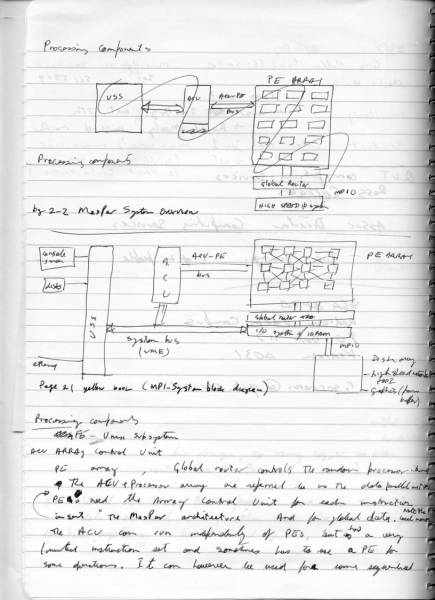 Processing Components
PE ARRAY
USS
ACU
ACU-PE
BUS
Processing components
Global Router
MPIO
HIGH SPEED I/O system
fig 2-2 MasPar System Overview
console
disks
ethernet
USS
ACU
ACU-PE
bus
PE ARRAY
Global router
I/O system + IORAM
system bus
(VME)
MPIO
Disk array
high speed
Graphics (frame
buffer)
Page 21 yellow book (MP1-System block diagram)
Processing components
PE - Unix subsystem
ACU ARRAY Control Unit
PE array, Global router controls the random processor
The ACU + Processor array are referred to as the data parallel unit
PEs need the Array Control Unit for each instruction
insert "The MasPar architecture And for global data,
The ACU can run independently of PEs, but has a very
limited instruction set and sometimes has to use a PE for
some operations. It can however be used for some sequential